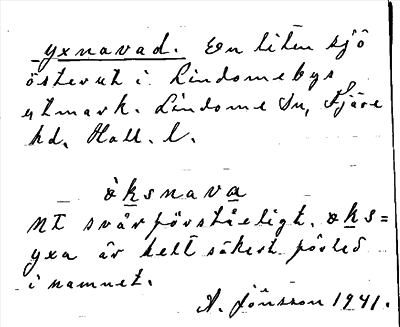 yxnavad. En liten sjö
österut i Lindomebys
utmark. Lindome Sn, Fjäre
hd. Hall. l.
öksnava
nt svårförståeligt. øks=
yxa är helt säkert förled
i namnet.
A. Jönsson 1941.